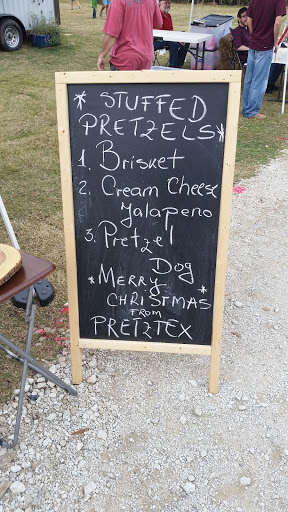 * STUFFED
PRETZELS *
1. Brisket
2. Cream Cheese
Jalapeno
3. Pretzel
Dog
* MERRY *
CHRISTMAS
FROM
PRETZTEX